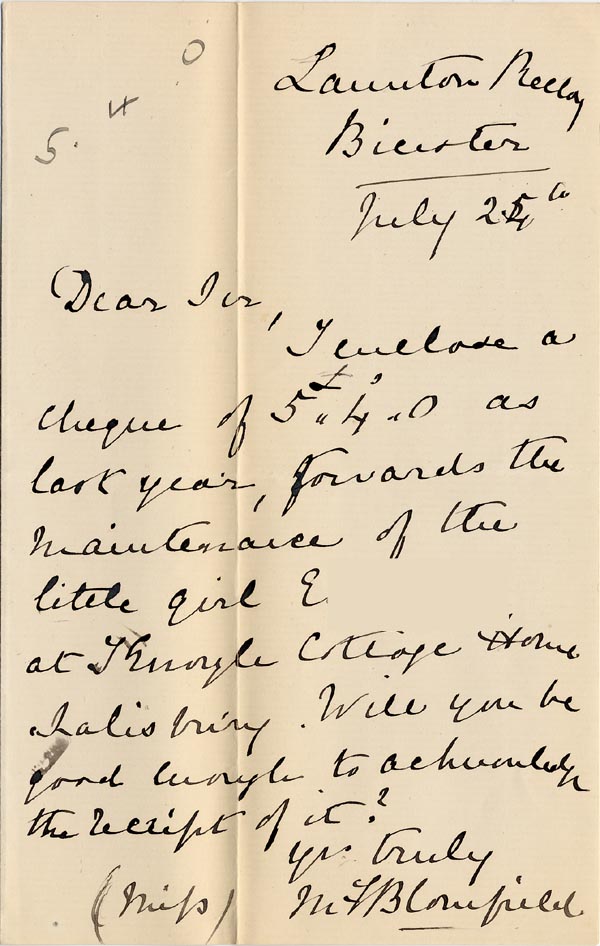 5. 4 0
Launton Rectory
Bicester
July 25th
Dear Sir,
I enclose a
cheque of £5 „ 4s „ 0 as
last year, towards the
maintenance of the
little girl E
at Knoyle Cottage Home
Salisbury. Will you be
good enough to acknowledge
the receipt of it?
yrs truly
(Miss) Blomfield